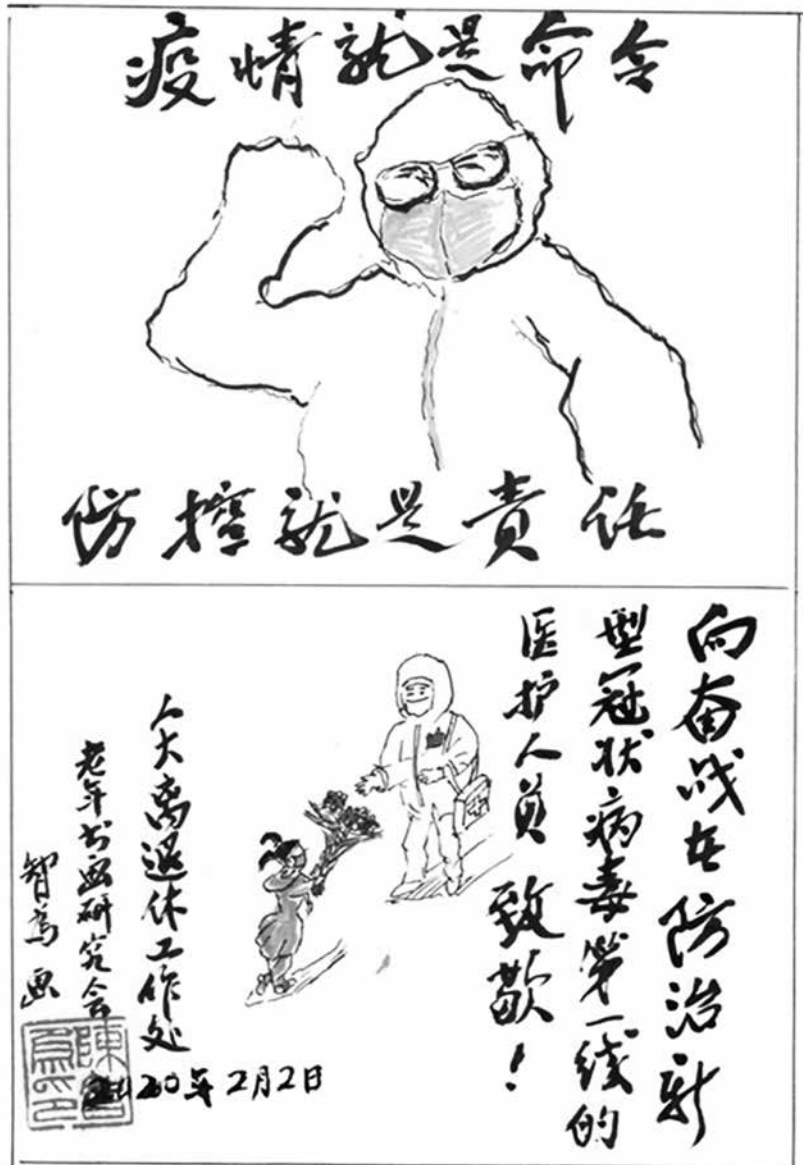 疫情就是命令
防控就是責任
向奋战在防治新
型冠状病毒第一线的
医护人员 致敬！
人大离退休工作处
老年书画研究会
智为画
2020年2月2日